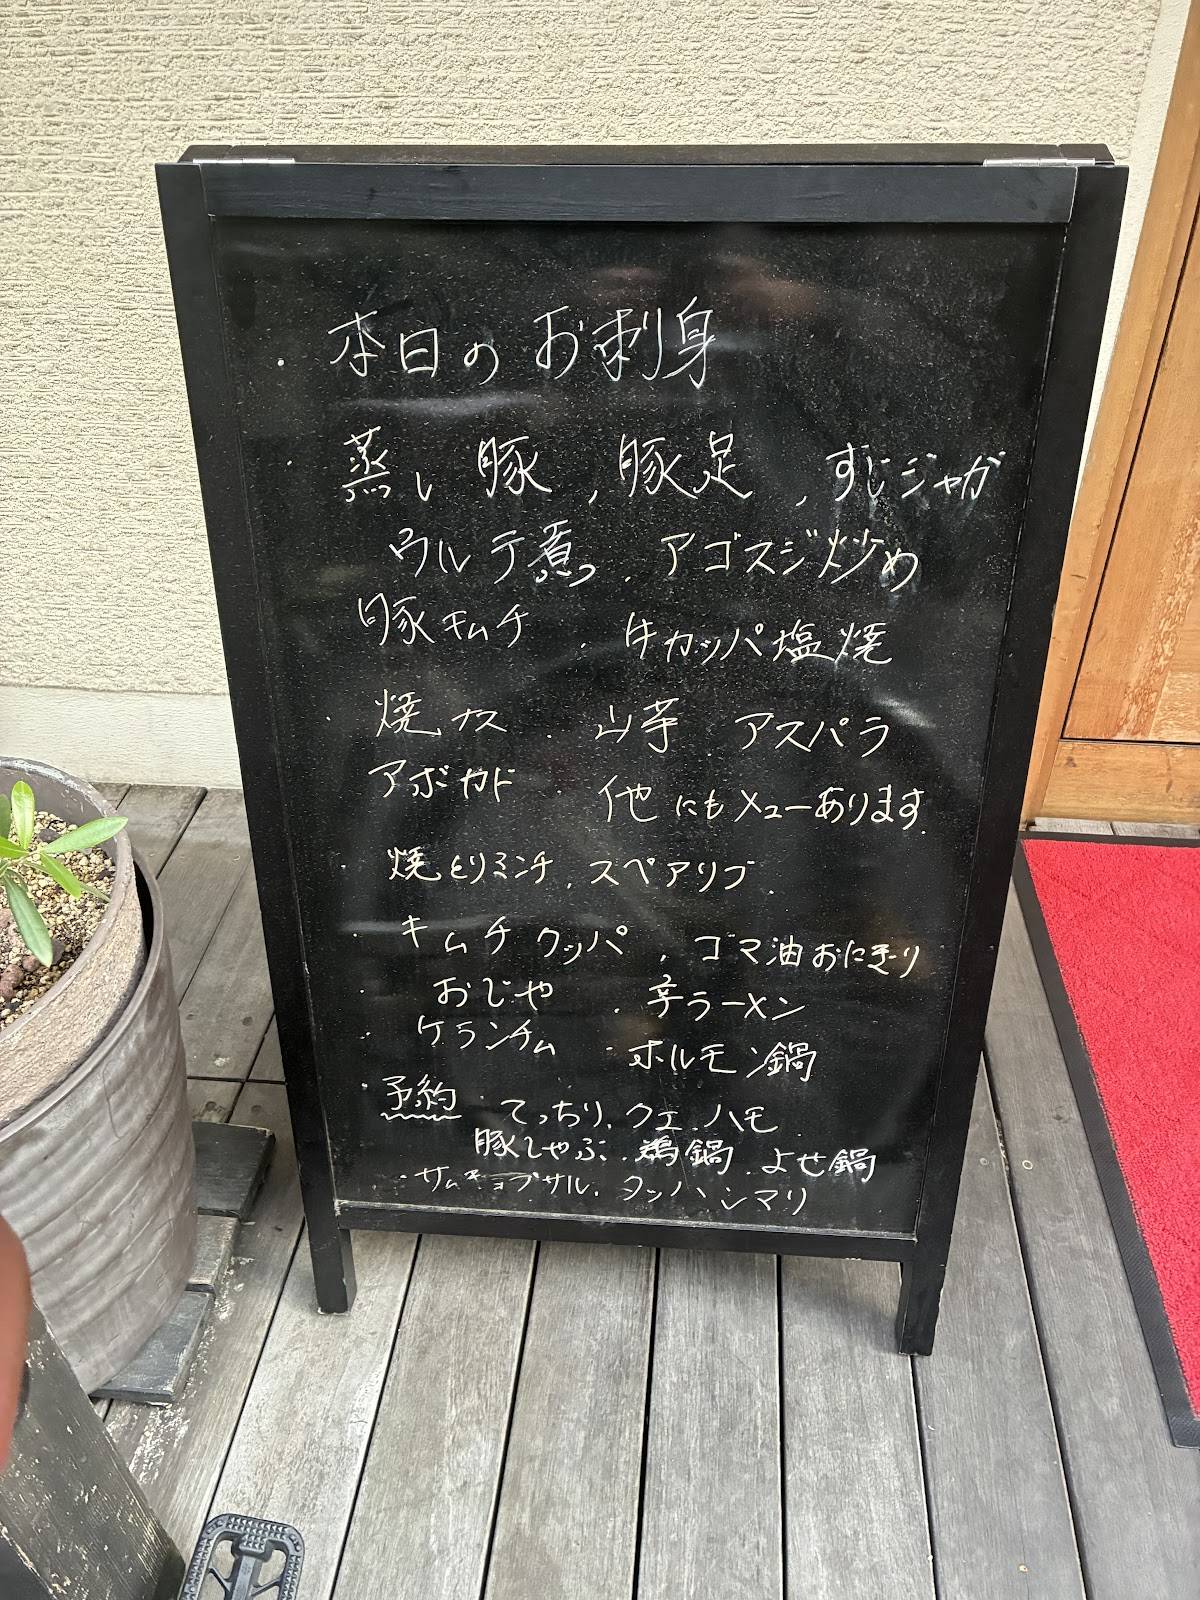 ・本日のお刺身
・蒸し豚、豚足、すじジャガ
ウルテ煮・アゴスジ炒め
豚キムチ・牛カッパ塩焼
・焼ナス・山芋・アスパラ
アボカド・他にもメニューあります。
・焼とりミンチ、スペアリブ、
・キムチクッパ、ゴマ油おにぎり
・おじや・辛ラーメン
・ケランチム・ホルモン鍋
・予約・てっちり、クエ、ハモ、
豚しゃぶ、鶏鍋、よせ鍋
・サムギョプサル、タッハンマリ